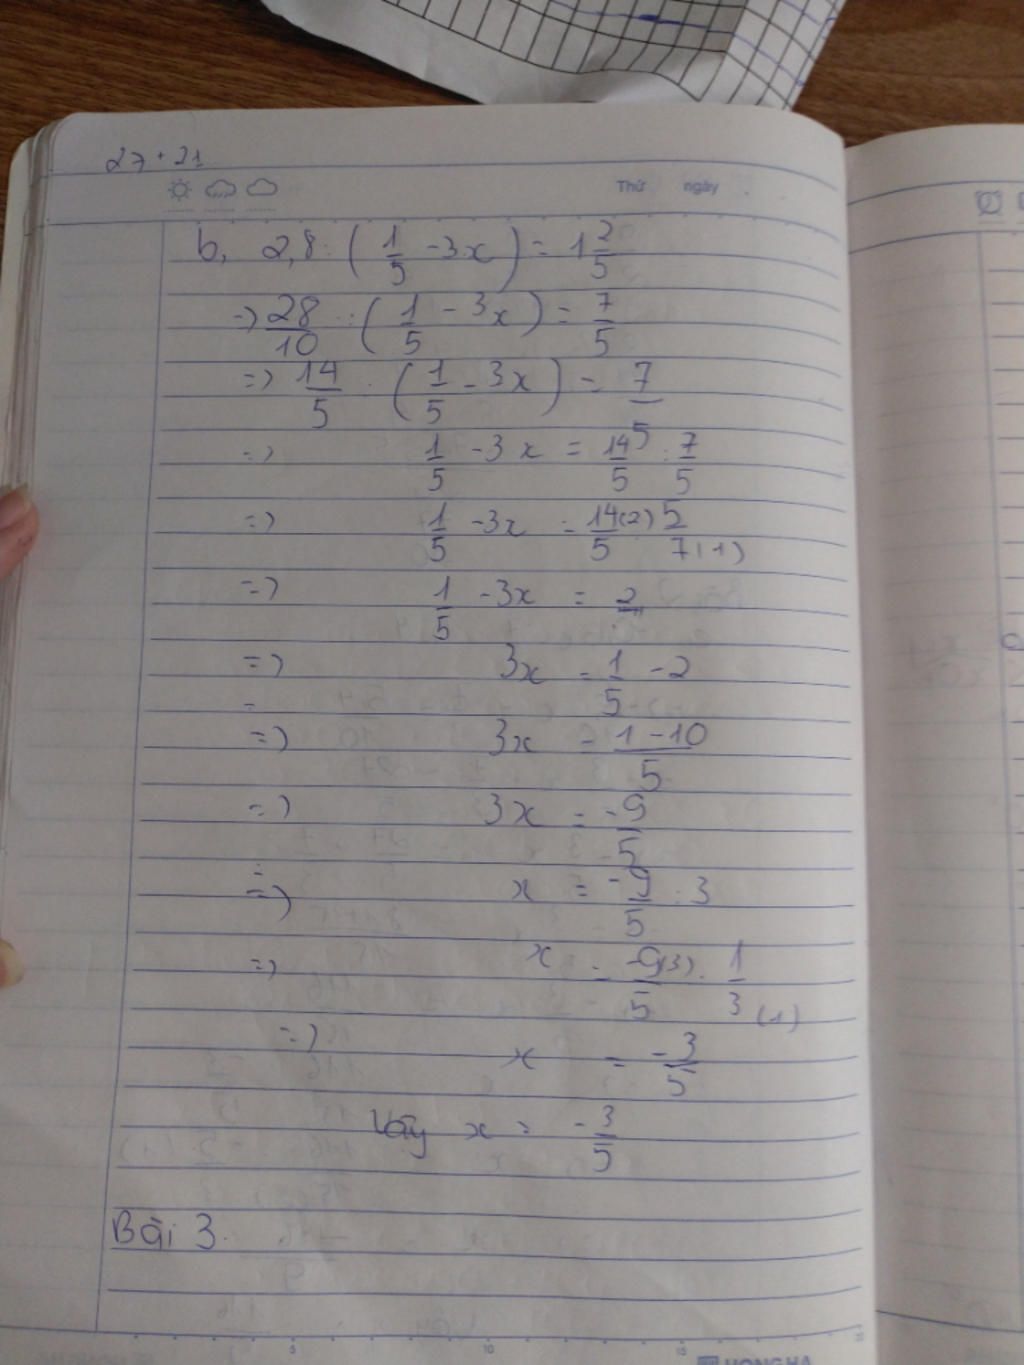 27 + 21
Thứ ngày
b, 2,8 : ( 1/5 - 3x ) = 1 2/5
=> 28/10 : ( 1/5 - 3x ) = 7/5
=> 14/5 : ( 1/5 - 3x ) = 7/5
=> 1/5 - 3x = 14/5 : 7/5
=> 1/5 - 3x = 14(2)/5 . 5/7(1)
=> 1/5 - 3x = 2
=> 3x = 1/5 - 2
=> 3x = (1 - 10)/5
=> 3x = -9/5
=> x = -9/5 : 3
=> x = -9(3)/5 . 1/3(1)
=> x = -3/5
Vậy x = -3/5
Bài 3.
5 10 15
HONG HA